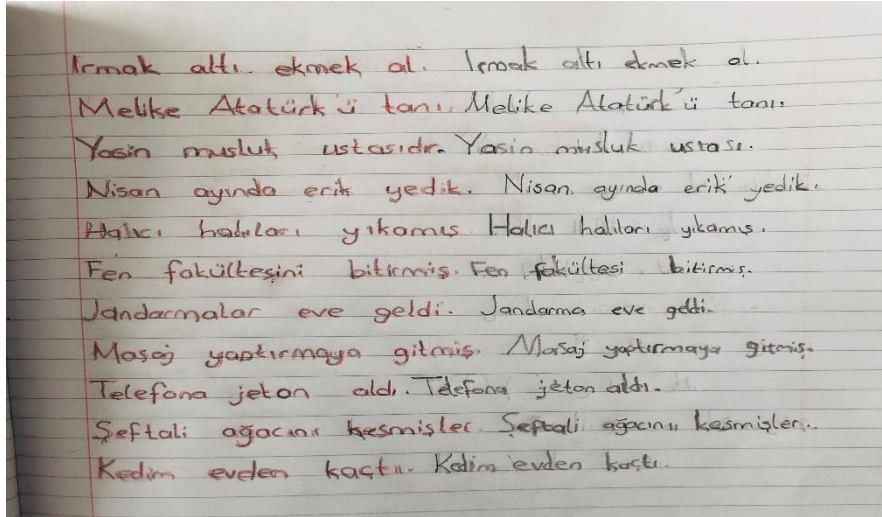 Irmak altı ekmek al. Irmak altı ekmek al.
Melike Atatürk'ü tanı. Melike Atatürk'ü tanı.
Yasin musluk ustasıdr. Yasin musluk ustası.
Nisan ayında erik yedik. Nisan ayında erik yedik.
Halıcı halıları yıkamış Halıcı halıları yıkamış.
Fen fakültesini bitirmiş. Fen fakültesi bitirmiş.
Jandarmalar eve geldi. Jandarma eve geldi.
Masaj yaptırmaya gitmiş. Masaj yaptırmaya gitmiş.
Telefona jeton aldı. Telefona jeton aldı.
Şeftali ağacını kesmişler. Şeftali ağacını kesmişler.
Kedim evden kaçtı. Kedim evden kaçtı.